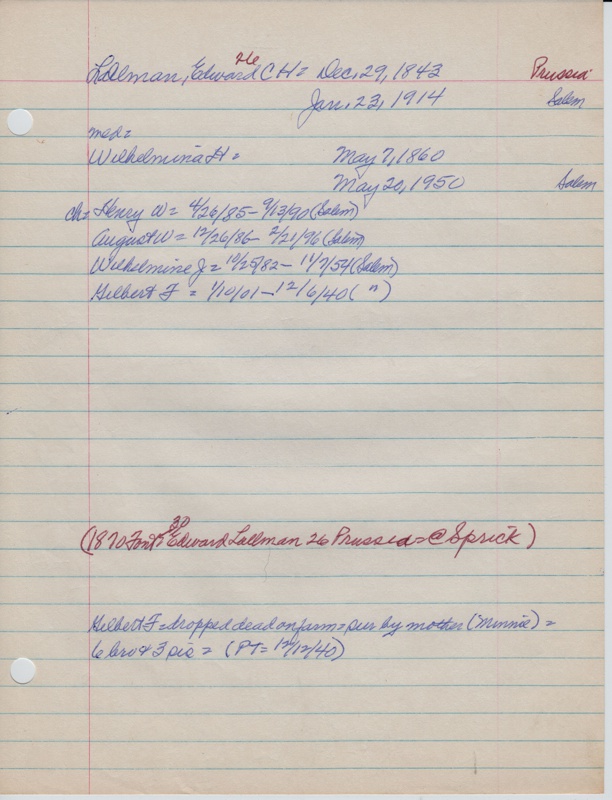 26
Lallman, Edward C H = Dec. 29, 1843 Prussia
Jan. 23, 1914 Salem
med =
Wilhelmina H = May 7, 1860
May 20, 1950 Salem
ch = Henry W = 4/26/85 - 9/13/90 (Salem)
August W = 12/26/86 - 2/21/96 (Salem)
Wilhelmine J = 10/25/82 - 11/7/54 (Salem)
Gilbert F = 1/10/01 - 12/6/40 ( " )
30
(1870 Font Edward Lallman 26 Prussia = @ Sprick)
Gilbert F = dropped dead on farm = sur by mother ("Minnie) =
6 bro & 3 sis = (PT = 12/12/40)